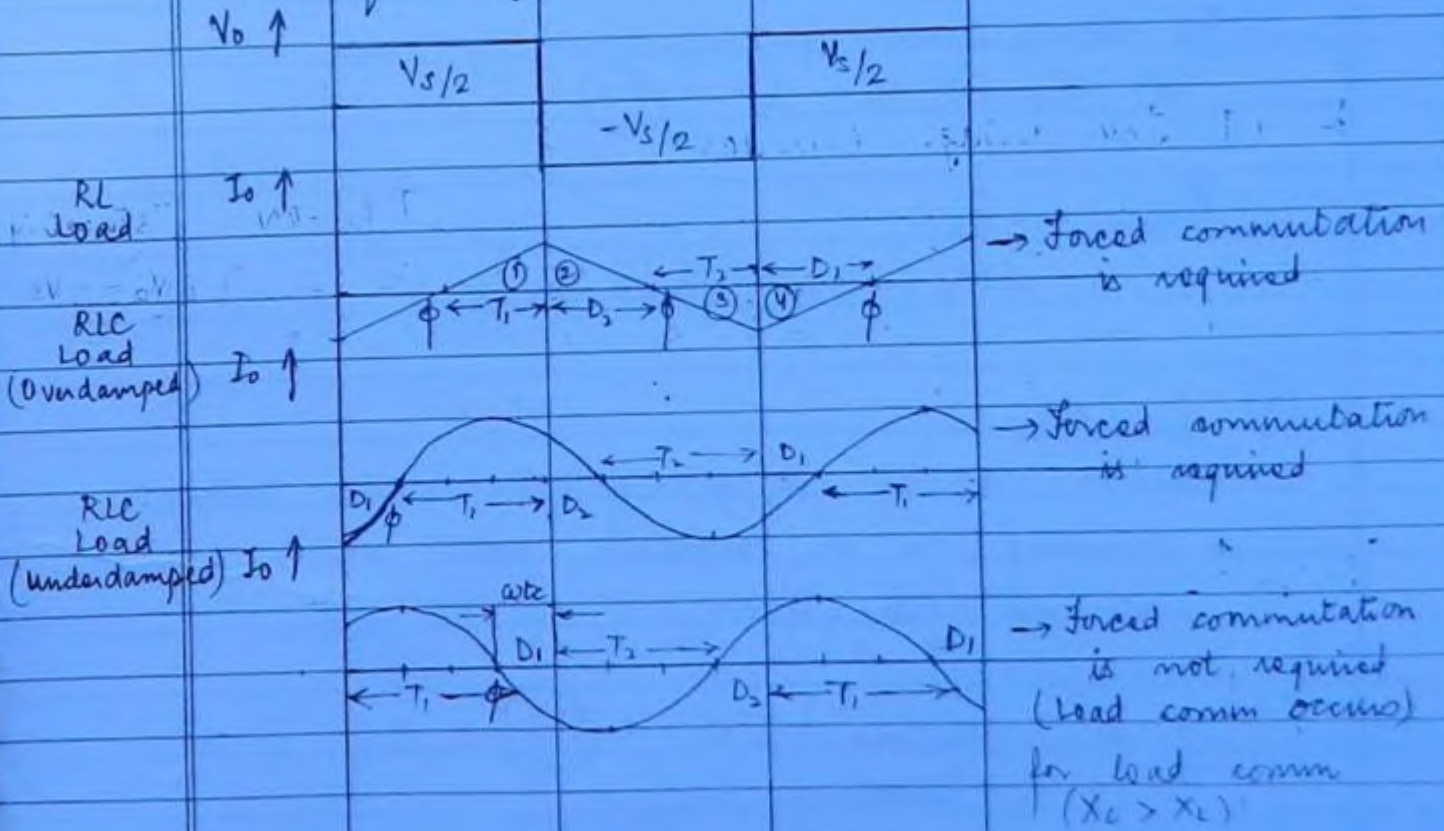 V₀ ↑
Vs/2
-Vs/2
Vs/2
RL
Load
I₀ ↑
① ② ③ ④
ϕ ← T₁ → ← D₂ → ϕ
← T₂ → ← D₁ → ϕ
→ Forced commutation
is required
RLC
Load
(Overdamped) I₀ ↑
D₁ ϕ ← T₁ → D₂
← T₂ → D₁
← T₁ →
→ Forced commutation
is required
RLC
Load
(Underdamped) I₀ ↑
ωtc
← T₁ → ϕ D₁
← T₂ → D₂
← T₁ → D₁
→ Forced commutation
is not required
(Load comm occurs)
for load comm
(Xc > XL)